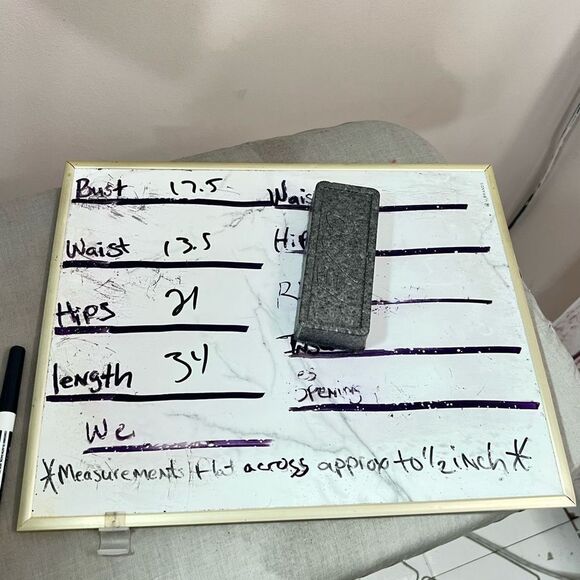 Bust 17.5
Waist 13.5
Hips 21
length 34
We
Wais
Hip
R
es
opening
*Measurements flat across approx to 1/2 inch*